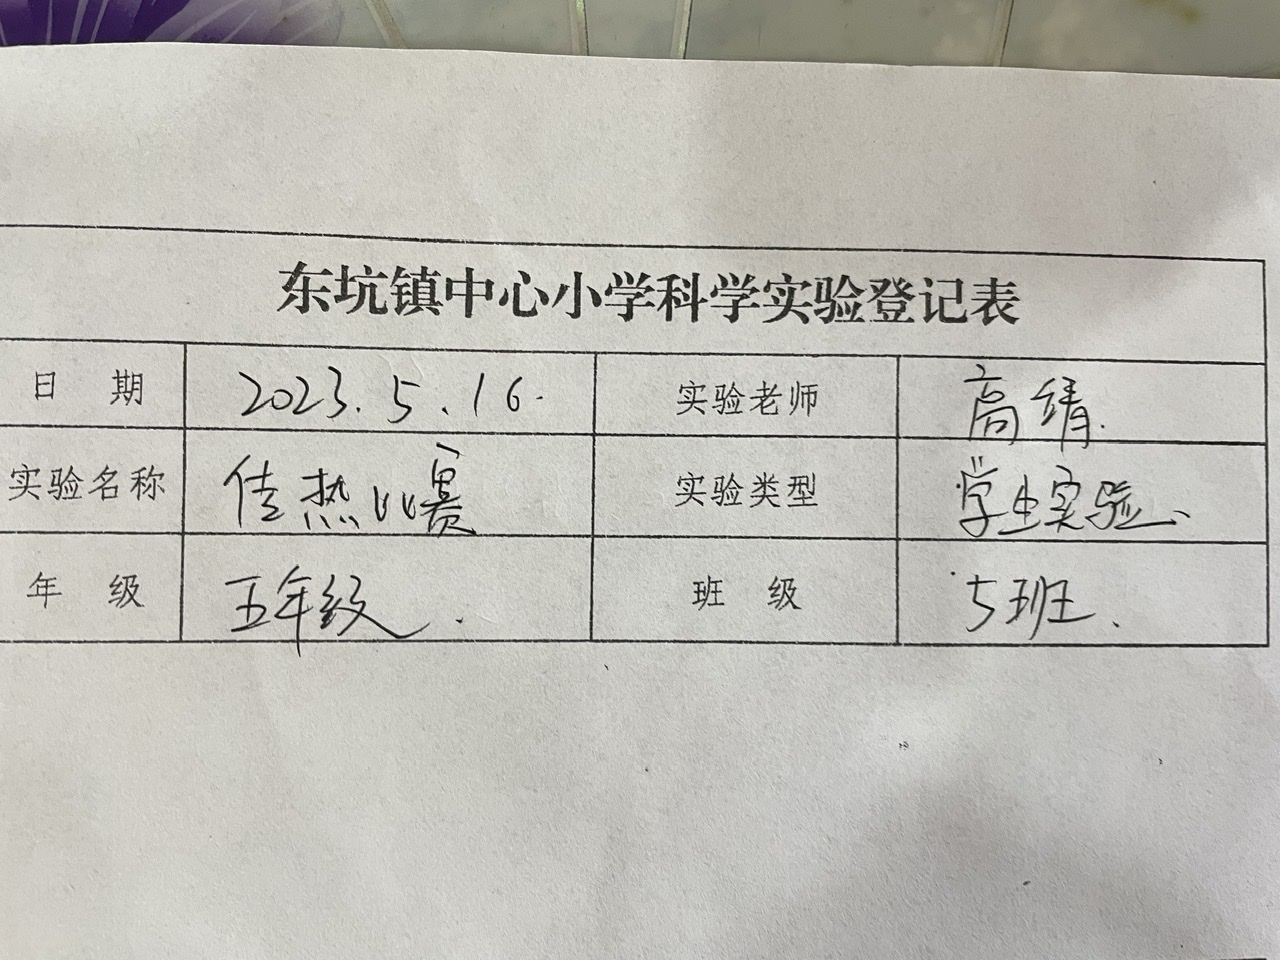 东坑镇中心小学科学实验登记表
日 期 2023.5.16. 实验老师 高靖.
实验名称 传热比赛 实验类型 学生实验、
年 级 五年级. 班 级 5班、